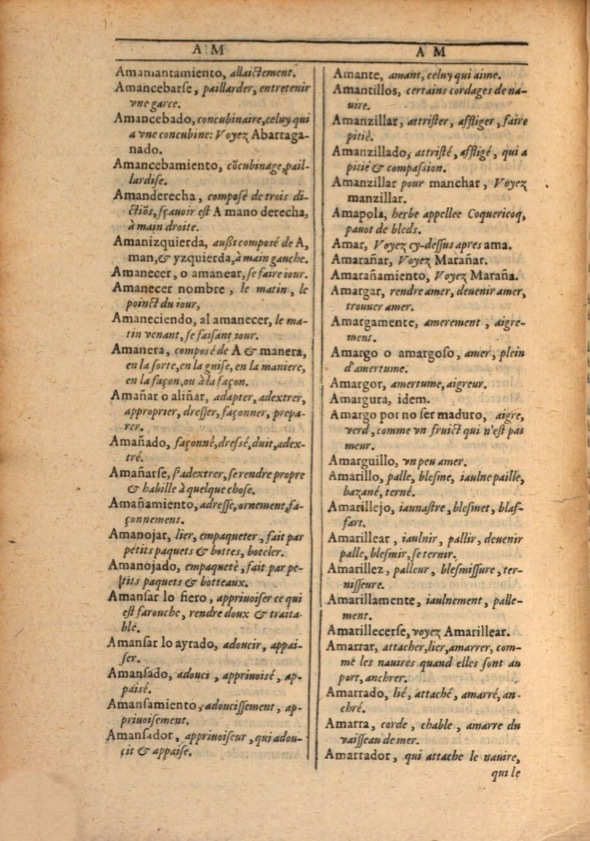 A M
Amamantamiento, allaictement.
Amancebarſe, paillarder, entretenir
vne garce.
Amancebado, concubinaire, celuy qui
a vne concubine: Voyez Abarraga-
nado.
Amancebamiento, cõcubinage, pail-
lardiſe.
Amanderecha, compoſé de trois di-
ctiõs, ſçauoir eſt A mano derecha,
à main droite.
Amanizquierda, auſſi compoſé de A,
man, & yzquierda, à main gauche.
Amanecer, o amanear, ſe faire iour.
Amanecer nombre, le matin, le
poinct du iour,
Amaneciendo, al amanecer, le ma-
tin venant, ſe faiſant iour.
Amanera, compoſé de A & manera,
en la ſorte, en la guiſe, en la maniere,
en la façon, ou à la façon.
Amañar o aliñar, adapter, adextrer,
approprier, dreſſer, façonner, prepa-
rer.
Amañado, façonné, dreſſé, duit, adex-
tré.
Amañarſe, s'adextrer, ſe rendre propre
& habille à quelque choſe.
Amañamiento, adreſſe, ornement, fa-
çonnement.
Amanojar, lier, empaqueter, fait par
petits paquets & bottes, boteler.
Amanojado, empaqueté, fait par pe-
tits paquets & botteaux.
Amanſar lo fiero, appriuoiſer ce qui
eſt farouche, rendre doux & traita-
ble.
Amanſar lo ayrado, adoucir, appai-
ſer.
Amanſado, adouci, appriuoiſé, ap-
paiſé.
Amanſamiento, adouciſſement, ap-
priuoiſement.
Amanſador, appriuoiſeur, qui adou-
çit & appaiſe.
A M
Amante, amant, celuy qui aime.
Amantillos, certains cordages de na-
uire.
Amanzillar, attriſter, affliger, faire
pitié.
Amanzillado, attriſté, affligé, qui a
pitié & compaſſion.
Amanzillar pour manchar, Voyez
manzillar.
Amapola, herbe appellee Coquericoq,
pauot de bleds.
Amar, Voyez cy-deſſus apres ama.
Amarañar, Voyez Marañar.
Amarañamiento, Voyez Maraña.
Amargar, rendre amer, deuenir amer,
trouuer amer.
Amargamente, amerement, aigre-
ment.
Amargo o amargoſo, amer, plein
d'amertume.
Amargor, amertume, aigreur.
Amargura, idem.
Amargo por no ſer maduro, aigre,
verd, comme vn fruict qui n'eſt pas
meur.
Amarguillo, vn peu amer.
Amarillo, palle, bleſme, iaulne paille,
bazané, terné.
Amarillejo, iaunaſtre, bleſinet, blaf-
fart.
Amarillear, iaulnir, pallir, deuenir
palle, bleſmir, ſe ternir.
Amarillez, palleur, bleſmiſſure, ter-
niſſeure.
Amarillamente, iaulnement, palle-
ment.
Amarillecerſe, voyez Amarillear.
Amarrar, attacher, lier, amarrer, com-
me les nauires quand elles ſont au
port, anchrer.
Amarrado, lié, attaché, amarré, an-
chré.
Amarra, corde, chable, amarre du
vaiſſeau de mer.
Amarrador, qui attache le nauire,
qui le